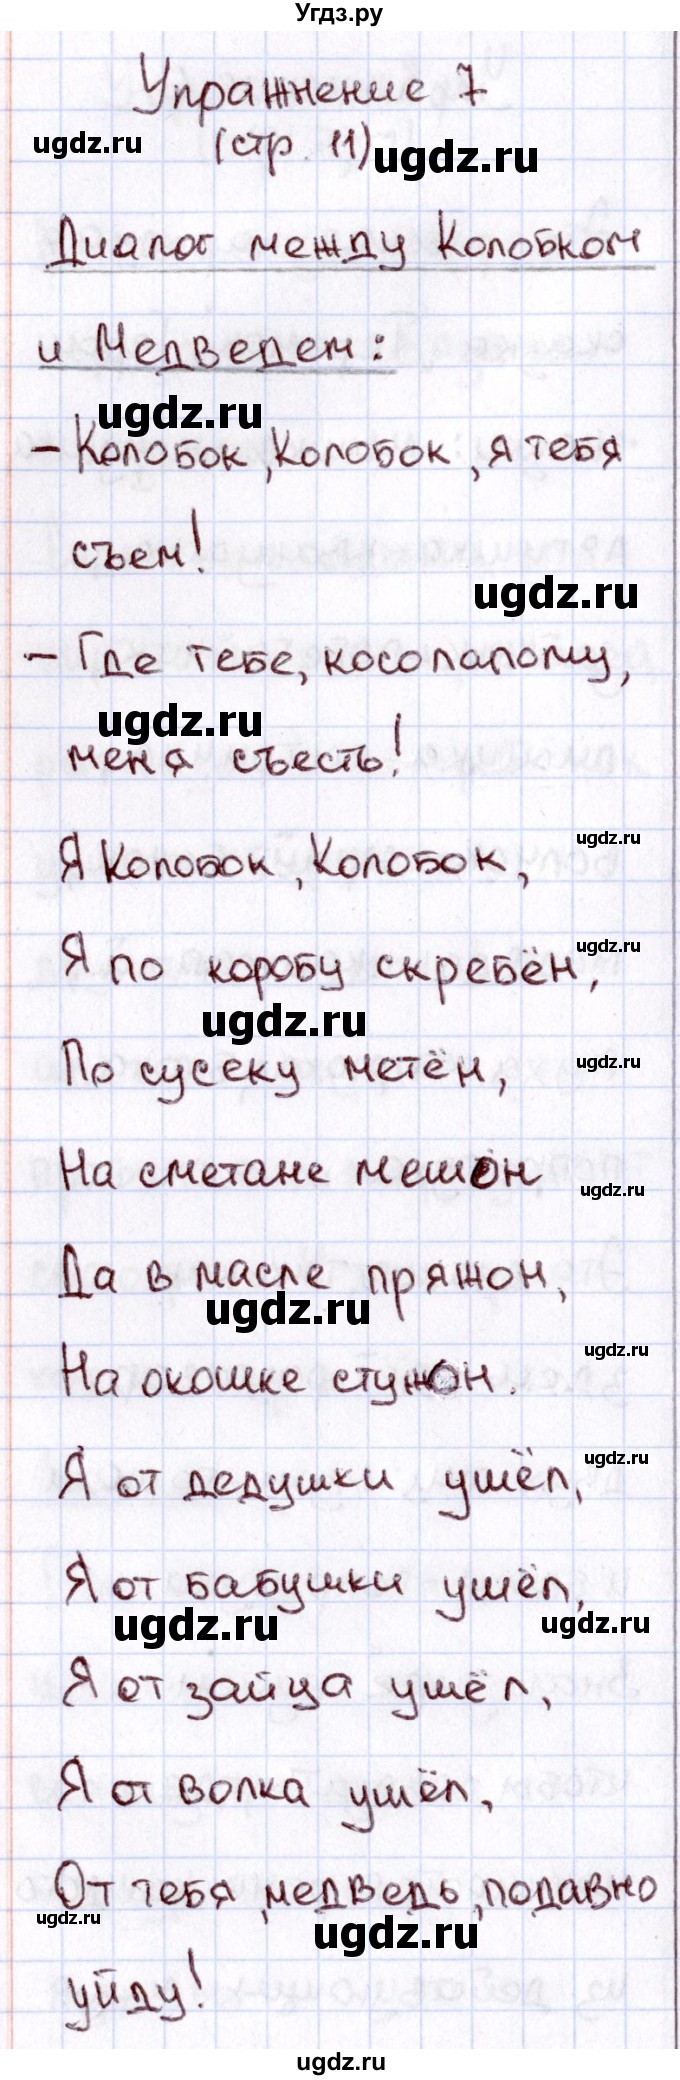 Угдз.ру
Упражнение 7
ugdz.ru
(стр. 11)
ugdz.ru
Диалог между Колобком
и Медведем:
ugdz.ru
– Колобок, Колобок, я тебя
съем!
ugdz.ru
– Где тебе, косолапому,
ugdz.ru
меня съесть!
ugdz.ru
Я Колобок, Колобок,
ugdz.ru
Я по коробу скребён,
ugdz.ru
По сусеку метён,
ugdz.ru
На сметане мешон
ugdz.ru
Да в масле пряжон,
ugdz.ru
На окошке стужон.
ugdz.ru
Я от дедушки ушёл,
ugdz.ru
Я от бабушки ушёл,
ugdz.ru
ugdz.ru
Я от зайца ушёл,
Я от волка ушёл,
От тебя, медведь, подавно
ugdz.ru
ugdz.ru
уйду!
ugdz.ru